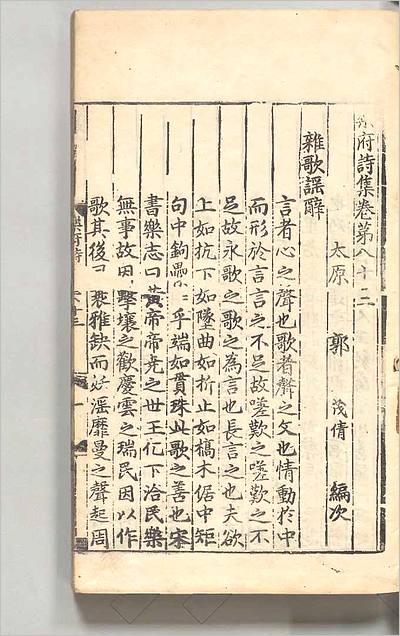 樂府詩集卷第八十三
太原 郭 茂倩 編次
雜歌謠辭
言者心之聲也歌者聲之文也情動於中
而形於言言之不足故嗟歎之嗟歎之不
足故永歌之歌之為言也長言之也夫欲
上如抗下如墜曲如折止如槁木倨中矩
句中鉤纍纍乎端如貫珠此歌之善也宋
書樂志曰黃帝帝堯之世王化下洽民樂
無事故因擊壤之歡慶雲之瑞民因以作
歌其後風衰雅缺而妖淫靡曼之聲起周